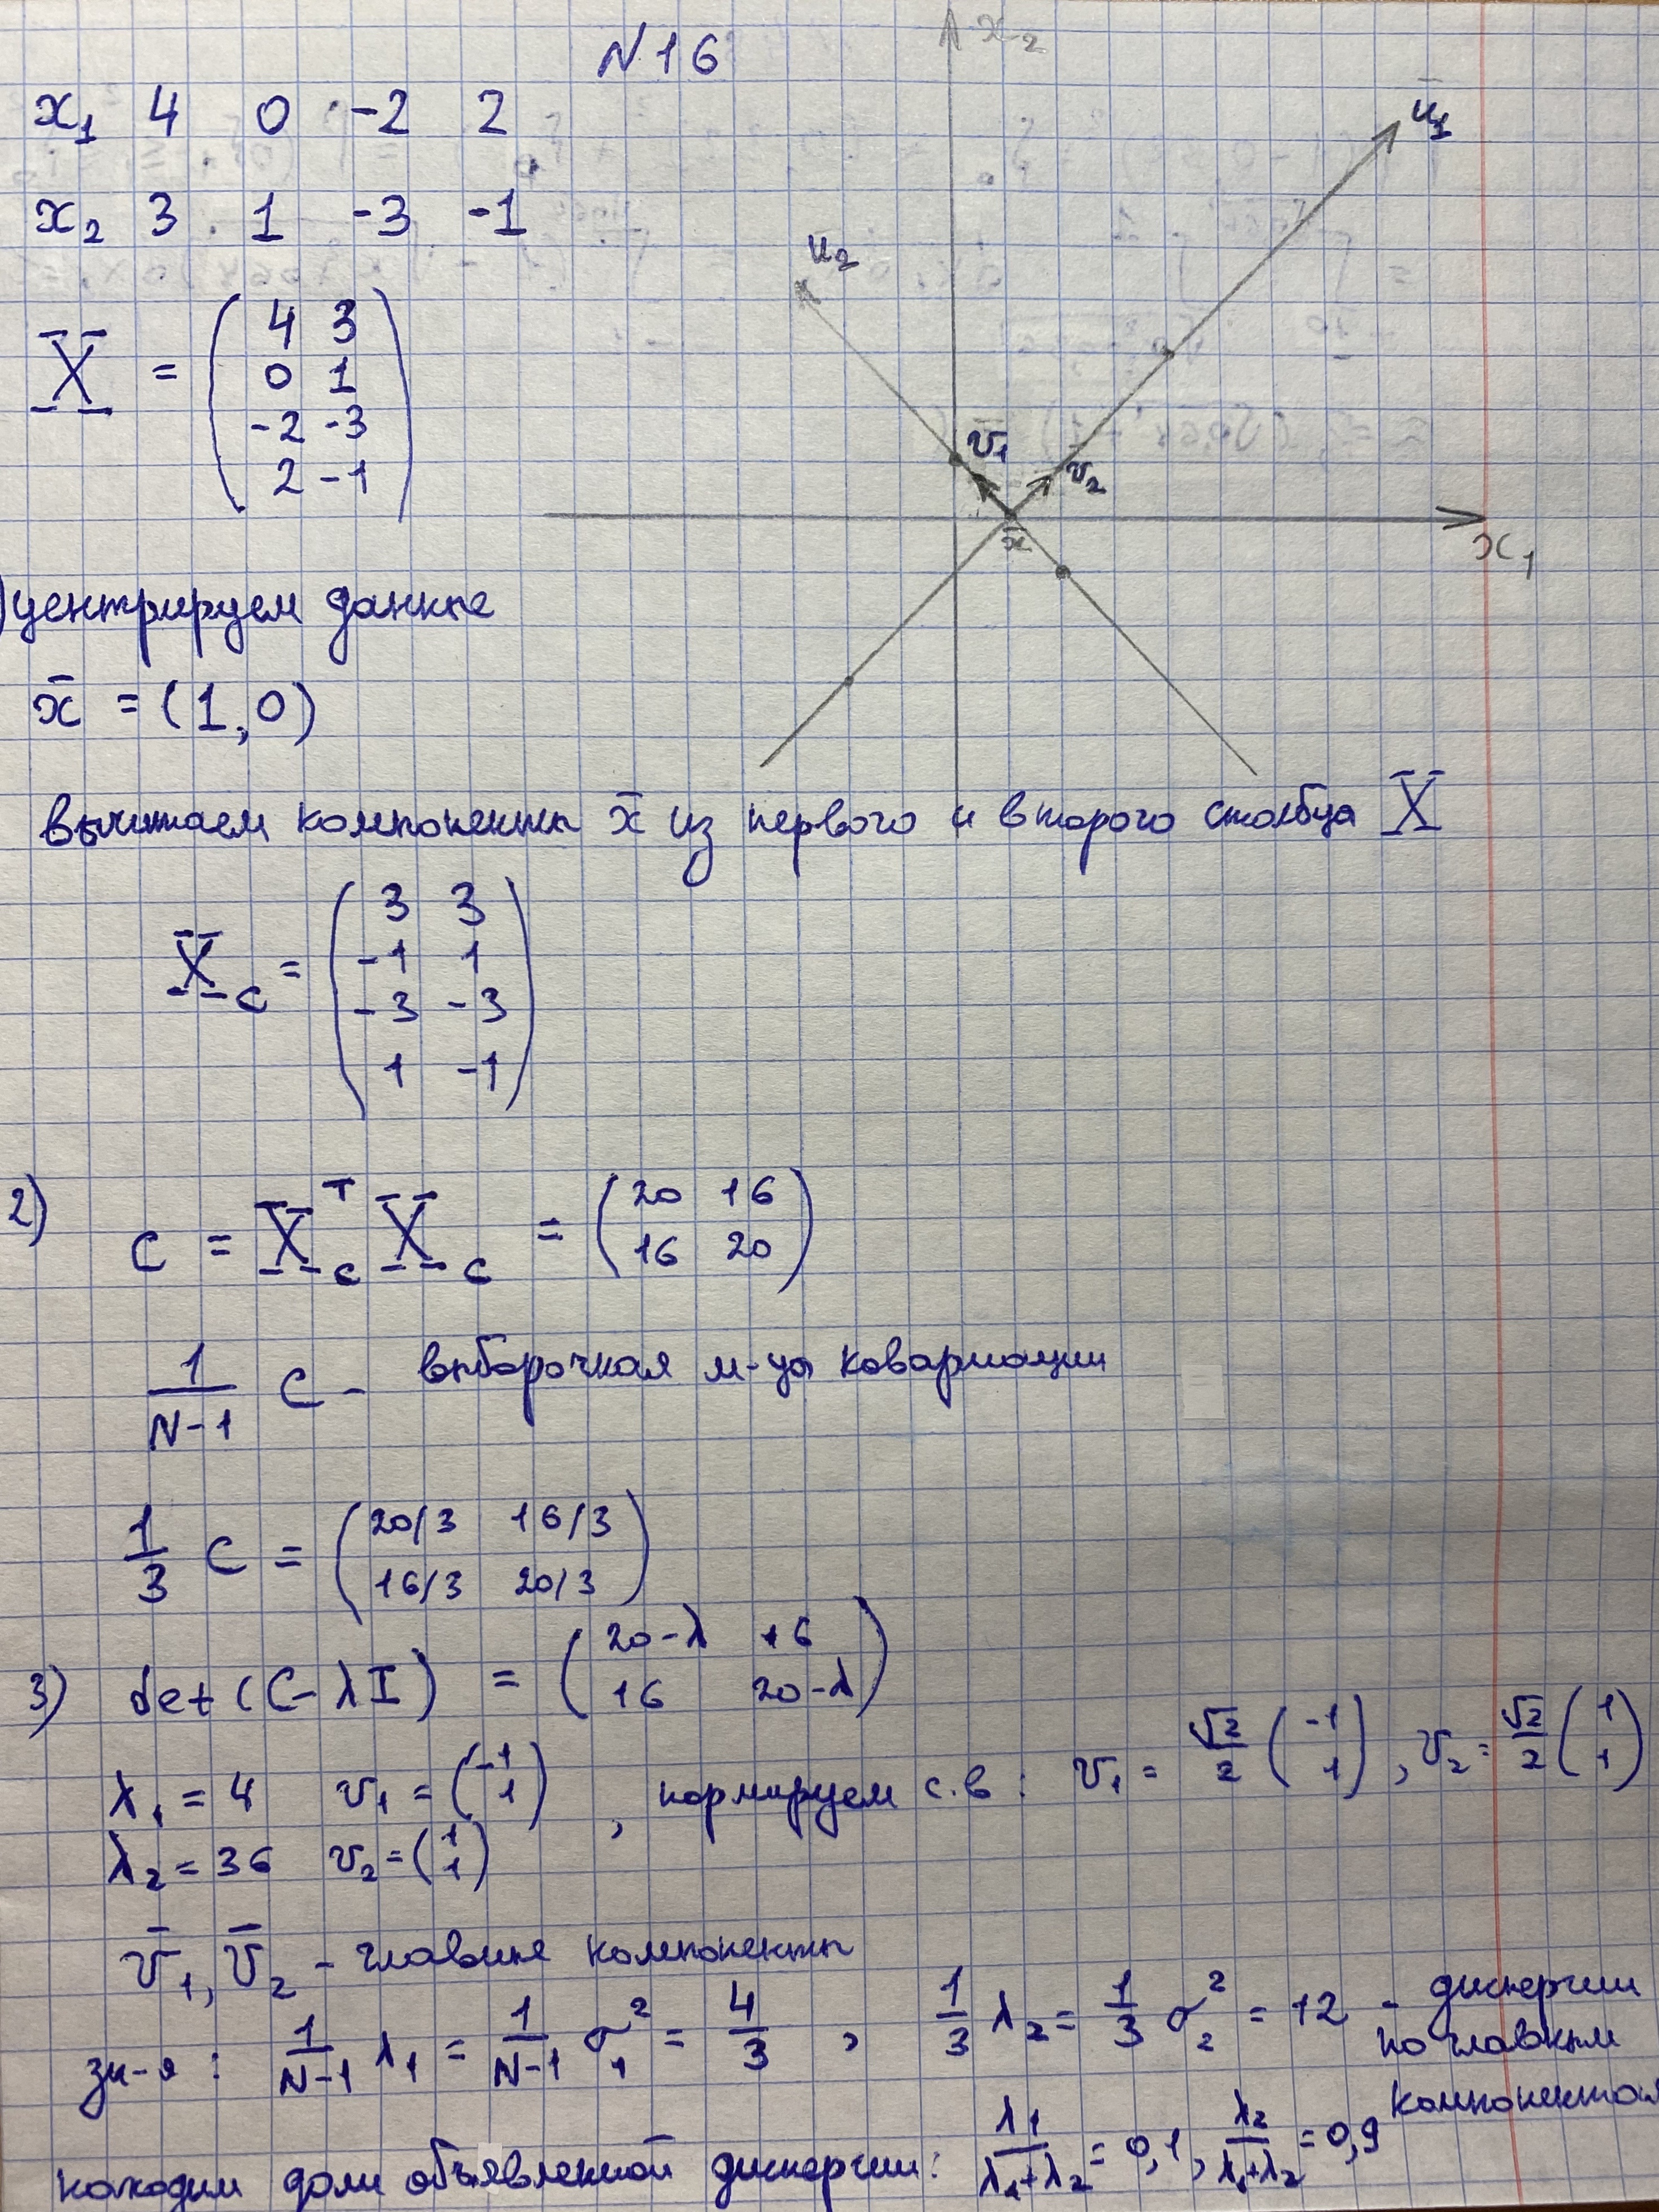 N 16
x₁ 4 0 -2 2
x₂ 3 1 -3 -1
X = ( 4 3
0 1
-2 -3
2 -1 )
x₂
u₁
u₂
v₁
v₂
x̄
x₁
) центрируем данные
x̄ = (1, 0)
вычитаем компоненты x̄ из первого и второго столбца X
X_c = ( 3 3
-1 1
-3 -3
1 -1 )
2) C = X_c^T X_c = ( 20 16
16 20 )
1/(N-1) C - выборочная м-ца ковариации
1/3 C = ( 20/3 16/3
16/3 20/3 )
3) det (C - λI) = ( 20-λ 16
16 20-λ )
λ₁ = 4 v₁ = (-1 1) , нормируем с.в : v₁ = √2/2 (-1 1) , v₂ = √2/2 (1 1)
λ₂ = 36 v₂ = (1 1)
v̄₁, v̄₂ - главные компоненты
зн-я : 1/(N-1) λ₁ = 1/(N-1) σ₁² = 4/3 , 1/3 λ₂ = 1/3 σ₂² = 12 - дисперсии
по главным
компонентам
находим доли объявленной дисперсии: λ₁/(λ₁+λ₂) = 0,1 , λ₂/(λ₁+λ₂) = 0,9